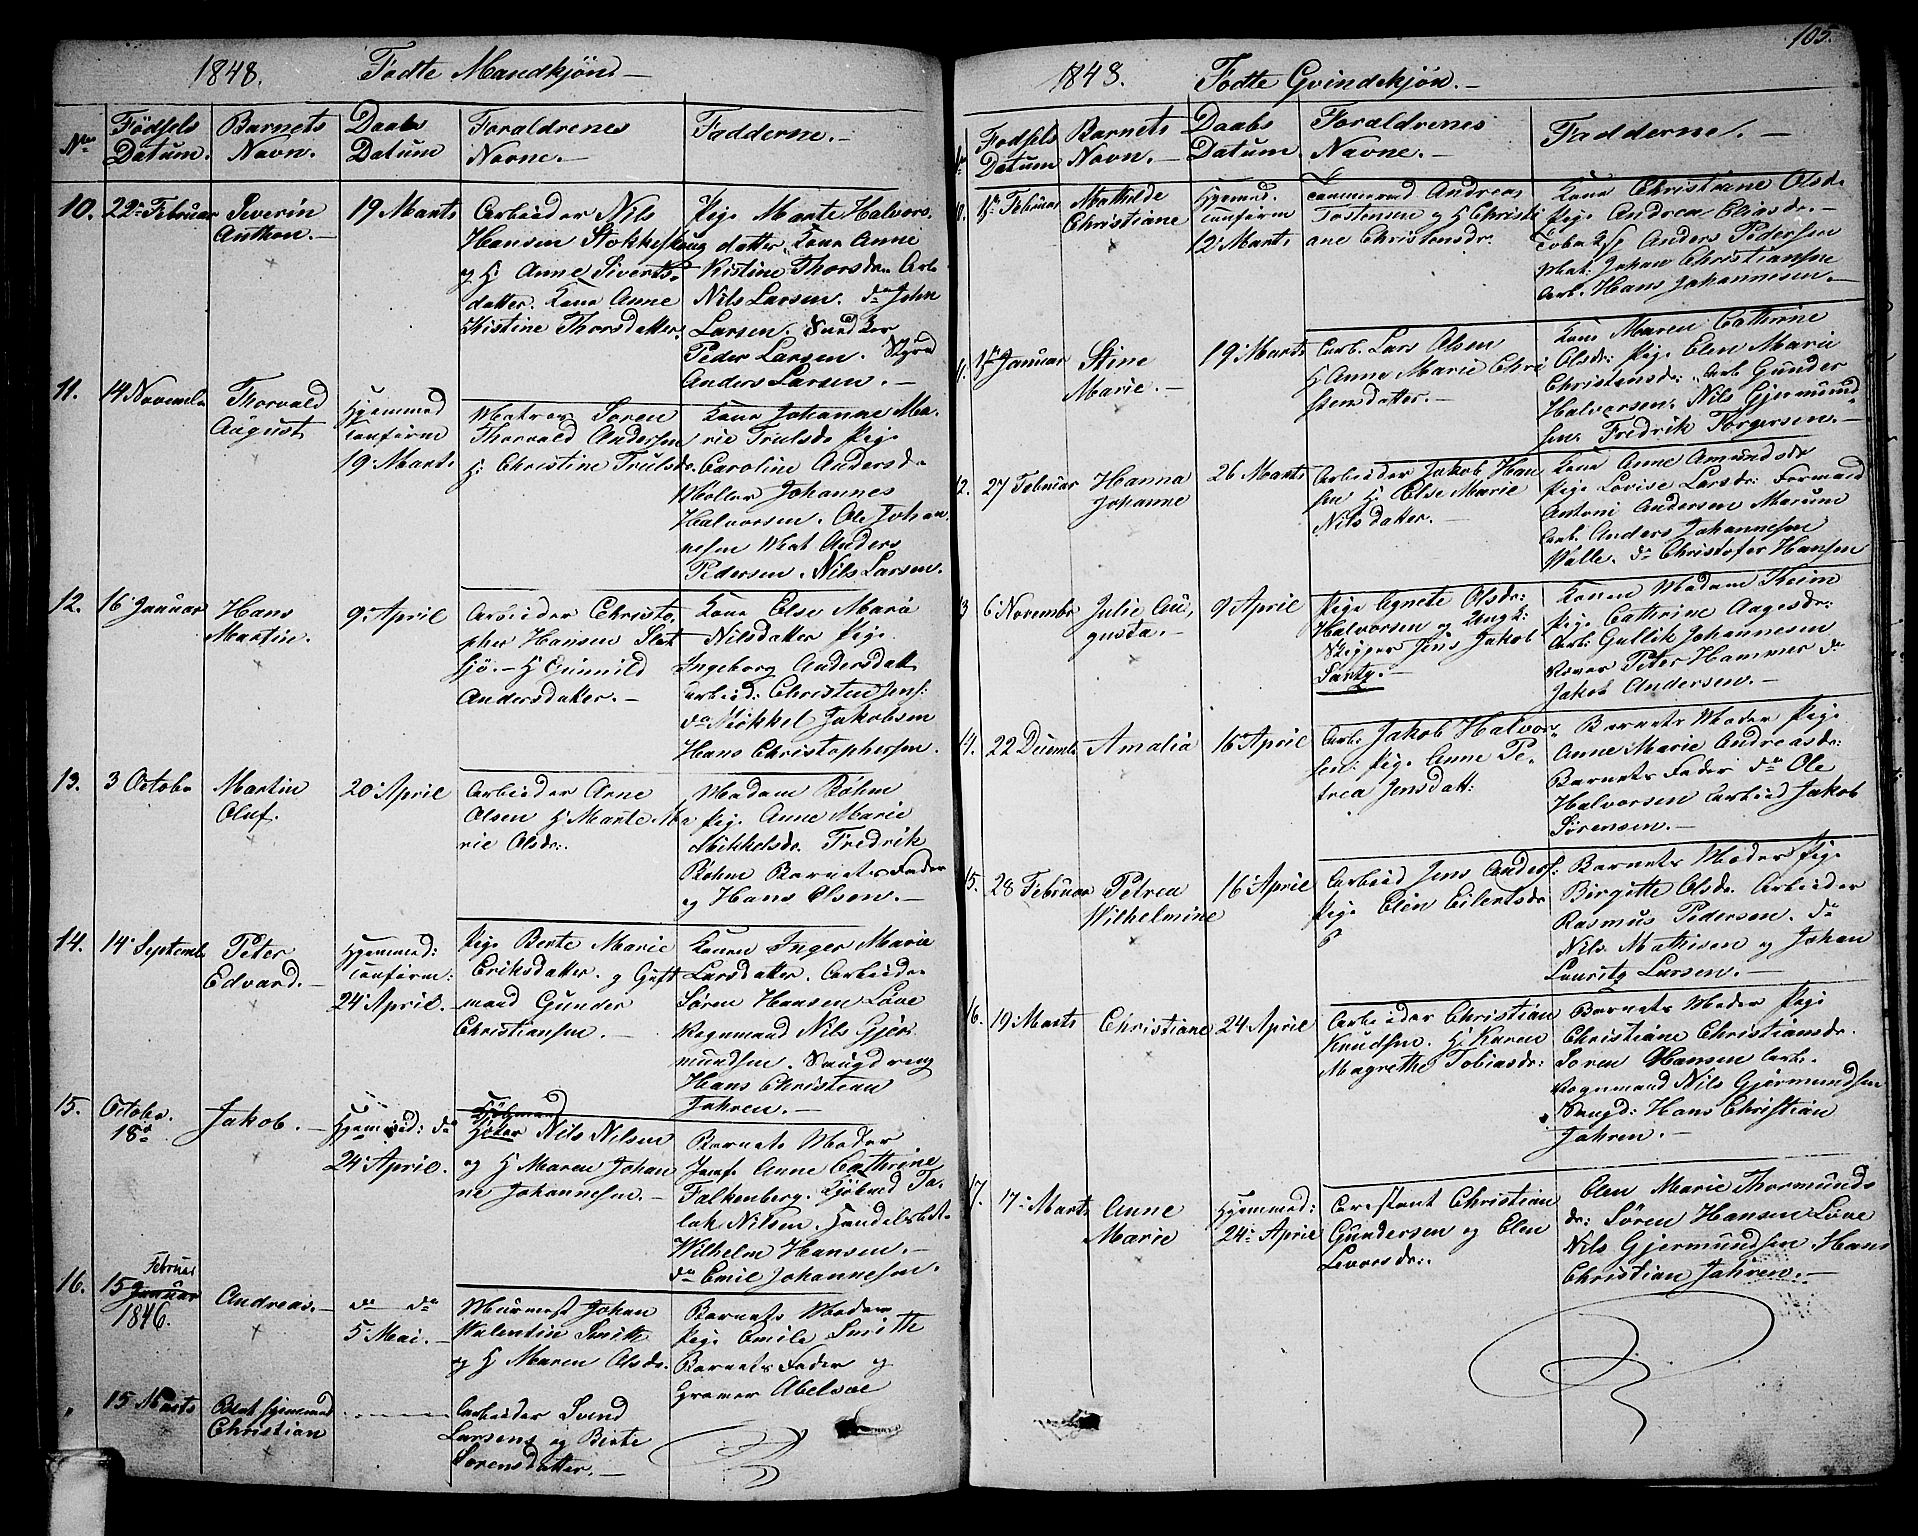 1848. Fødte Mandkjøn –
No
Fødsels Datum.
Barnets Navn.
Daabs Datum
Forældrenes Navne. –
Fadderne. –
10. 22 Februar
Severin
Anthon. –
19 Marts
Arbeider Nils
Hansen
og H. Anne Siverts
datter. Kone Anne
Kistine Thorsdatter.
Pige Marte Halvors
datter. Kone Anne
Kistine Thorsdr. Arb.
Nils Larsen. do John
Larsen. Snedker
Peder Larsen.
Anders Larsen. –
11. 14 Novembr
Thorvald
August
Hjemmed
confirm
19 Marts
Matros Søren
Thorvald Andersen
H: Christine Trulsdr.
Kone Johanne Ma
rie Trulsdr Pige
Caroline Andersdr
Møller Johannes
Halvorsen. Ole Johan
nesen Mat Anders
Pedersen. Nils Larsen.
12. 16 Januar
Hans
Martin.
9 April
Arbeider Christo
pher Hansen
sjø. – H Gunild
Andersdatter. –
Kone Else Maria
Nilsdatter Pige
Ingeborg Andersdatt
Arbeid: Christen Jens:
do Mikkel Jakobsen
Hans Christophersen.
13. 3 Octobr
Martin
Oluf.
20 April
Arbeider Arne
Olsen H Marte Ma
rie Olsdr:.
Madam Bøhm
Pige Anne Marie
Mikkelsdr. Fredrik
Bøhme Barnets Fader
og Hans Olsen. –
14. 14 Septemb
Peter
Edvard. –
Hjemmed:
confirm:
24 April.
Pige Berte Marie
Eriksdatter. og Gift
mand Gunder
Christiansen. –
Konen Inger Marie
Larsdatter. Arbeider
Søren Hansen Løve
Vognmand Nils Gjer
mundsen. Svogdreng
Hans Christian
Jahren. –
15. Octobr.
18
Jakob. –
Hjemmed: do
24 April.
Kjøbmand
Nils Nilsen
og H Maren Johan
ne Johannesen. –
Barnets Moder
Jomf Anne Cathrine
Falkenberg. Kjøbmd
Nilsen. Handelsbet.
Wilhelm Hansen. –
do Emil Johannesen.
16. 15 Februar
Januar
1846.
Andreas. –
do do
5 Mai. –
Murmest Johan
Valentin Smith
og H Maren Olsdr.
Barnets Moder
Pige Emile Smith
Barnets Fader og
Abelsøe
" 15 Marts
Blev hjemmed
Christian
Arbeider Svend
Larsens og Birte
Sørensdatter. –
105.
1848. Fødte Qvindekjøn. –
No
Fødsels Datum
Barnets Navn. –
Daabs Datum
Forældrenes Navne. –
Fadderne. –
10. Februar
Mathilde
Christiane
Hjemmd.
confirm
12 Marts
Tømmermd Andreas
Tostensen og H Christi
ane Christensdr.
Kone Christiane Olsdr
Pige Andrea Eliasdr. –
Anders Pedersen
Mat. Johan Christiansen
Arb. Hans Johannesen. –
11. Januar
Stine
Marie. –
19 Marts
Arb. Lars Olsen
H Anne Marie Chri
stensdatter. –
Kone Maren Cathrine
Olsdr: Pige Elen Marie
Christensdr: Arb Gunder
Halvorsen. Nils Gjermund
sen. Fredrik Torgersen. –
12. 27 Februar
Hanna
Johanne
26 Marts
Arbeider Jakob Han
sen H. Else Marie
Nilsdatter. –
Kone Anne Amundsdr
Pige Lovise Larsdr: Formand
Antoni Andersen Marum
Arb. Anders Johannesen
Walle. do Christofer Hansen
13 6 Novembr
Julie Au,
gusta. –
9 April
Pige Agnete Olsdr:
Halvorsen og Ungk:
Skipper Jens Jakob
Konen Madam Theim
Pige Cathrine Aagesdr:
Arb: Gullik Johannesen
Peter Hammer do
Jakob Andersen. –
14. 22 Decemb
Amalia
16 April
Arb: Jakob Halvor
sen: Pige Anne Pe
trea Jensdatt:
Barnets Moder Pige
Anne Marie Andreasdr:
Barnets Fader do Ole
Halvorsen Arbeid Jakob
Sørensen. –
15. 28 Februar
Petrea
Wilhelmine
16 April
Arbeid Jens Anders:
Pige Elen Eilertsdr
Barnets Moder Pige
Birgitte Olsdr. Arbeider
Rasmus Pedersen. do
Nils Mathisen og Johan
Lauritz Larsen. –
16. 19 Marts
Christiane
24 April
Arbeider Christian
Knudsen. H. Karen
Magrethe Tobiasdr:
Barnets Moder Pige
Christiane Christiansdr.
Søren Hansen Arb.
Vognmand Nils Gjermundsen
Svogd: Hans Christian
Jahren. –
17. 17 Marts
Anne
Marie
Hjemmed:
24 April
Arrestant Christian
Gundersen og Elen
Levorsdr:.
Elen Marie Thormunds
dr: Søren Hansen Løve
Nils Gjermundsen. Hans
Christian Jahren. –